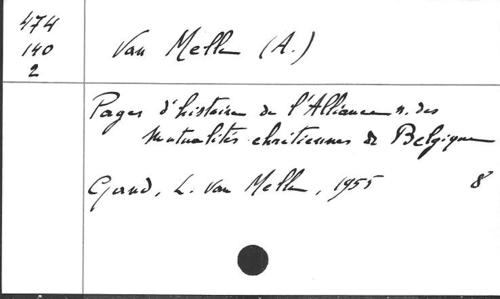 474
140
2
Van Melle (A.)
Pages d'histoire de l'Alliance n. des
Mutualités chrétiennes de Belgique
Gand, L. Van Melle, 1955 8